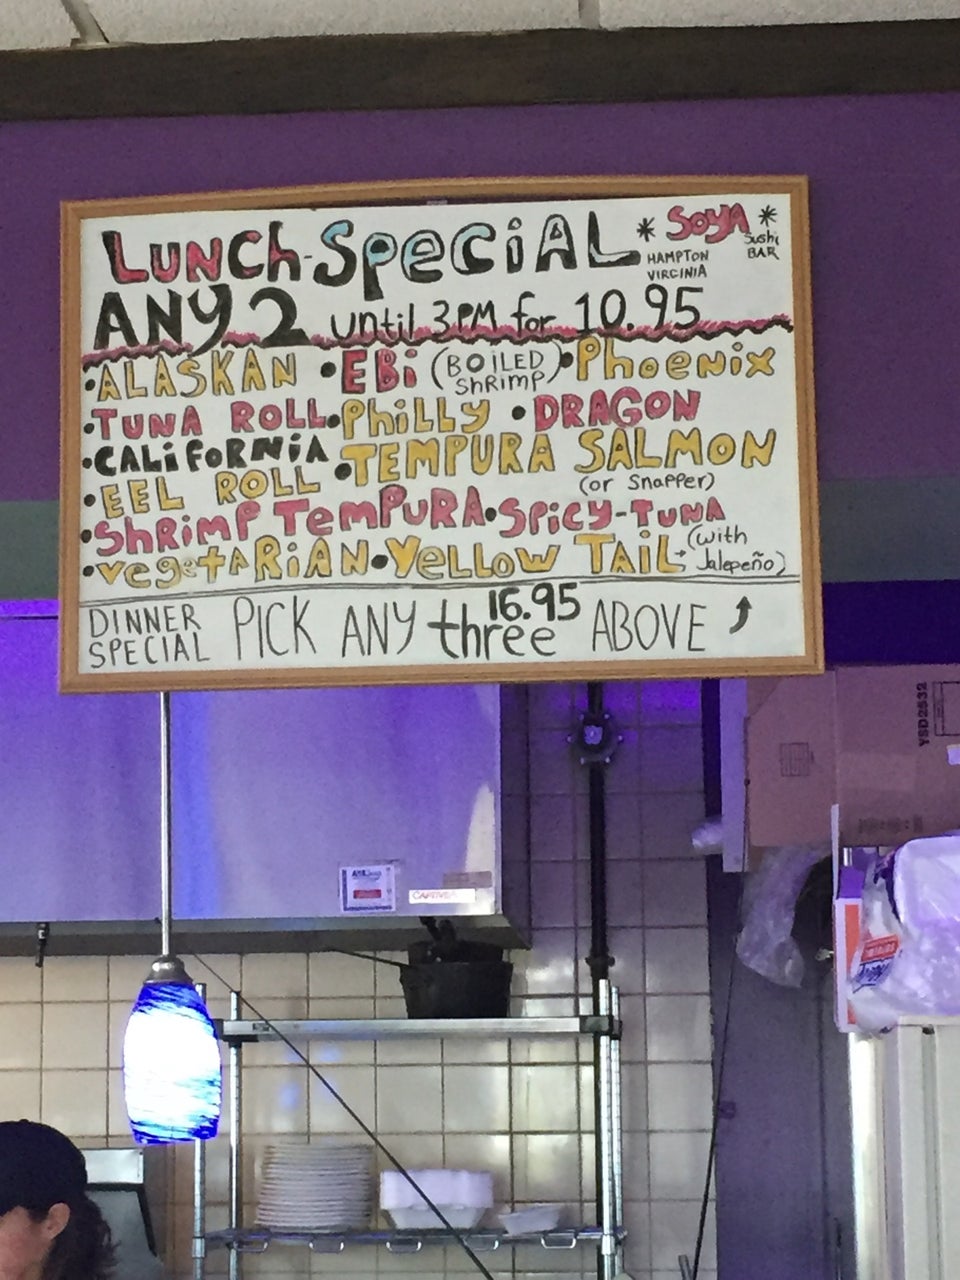 LUNCh-SpeCiAL * SOYA *
Sushi
BAR
HAMPTON
VIRGINIA
ANY 2 until 3PM for 10.95
•ALASKAN •EBi (BOILED ShRimp) •Phoenix
•TUNA ROLL •PhiLLY •DRAGON
•CALiFORNiA •TEMPURA SALMON
(or Snapper)
•EEL ROLL
•ShRimp TemPURA •SPiCY-TUNA
•vegetARiAN •YeLLOW TAiL- (with Jalepeño)
DINNER SPECIAL PICK ANY three 16.95 ABOVE
YSD2532